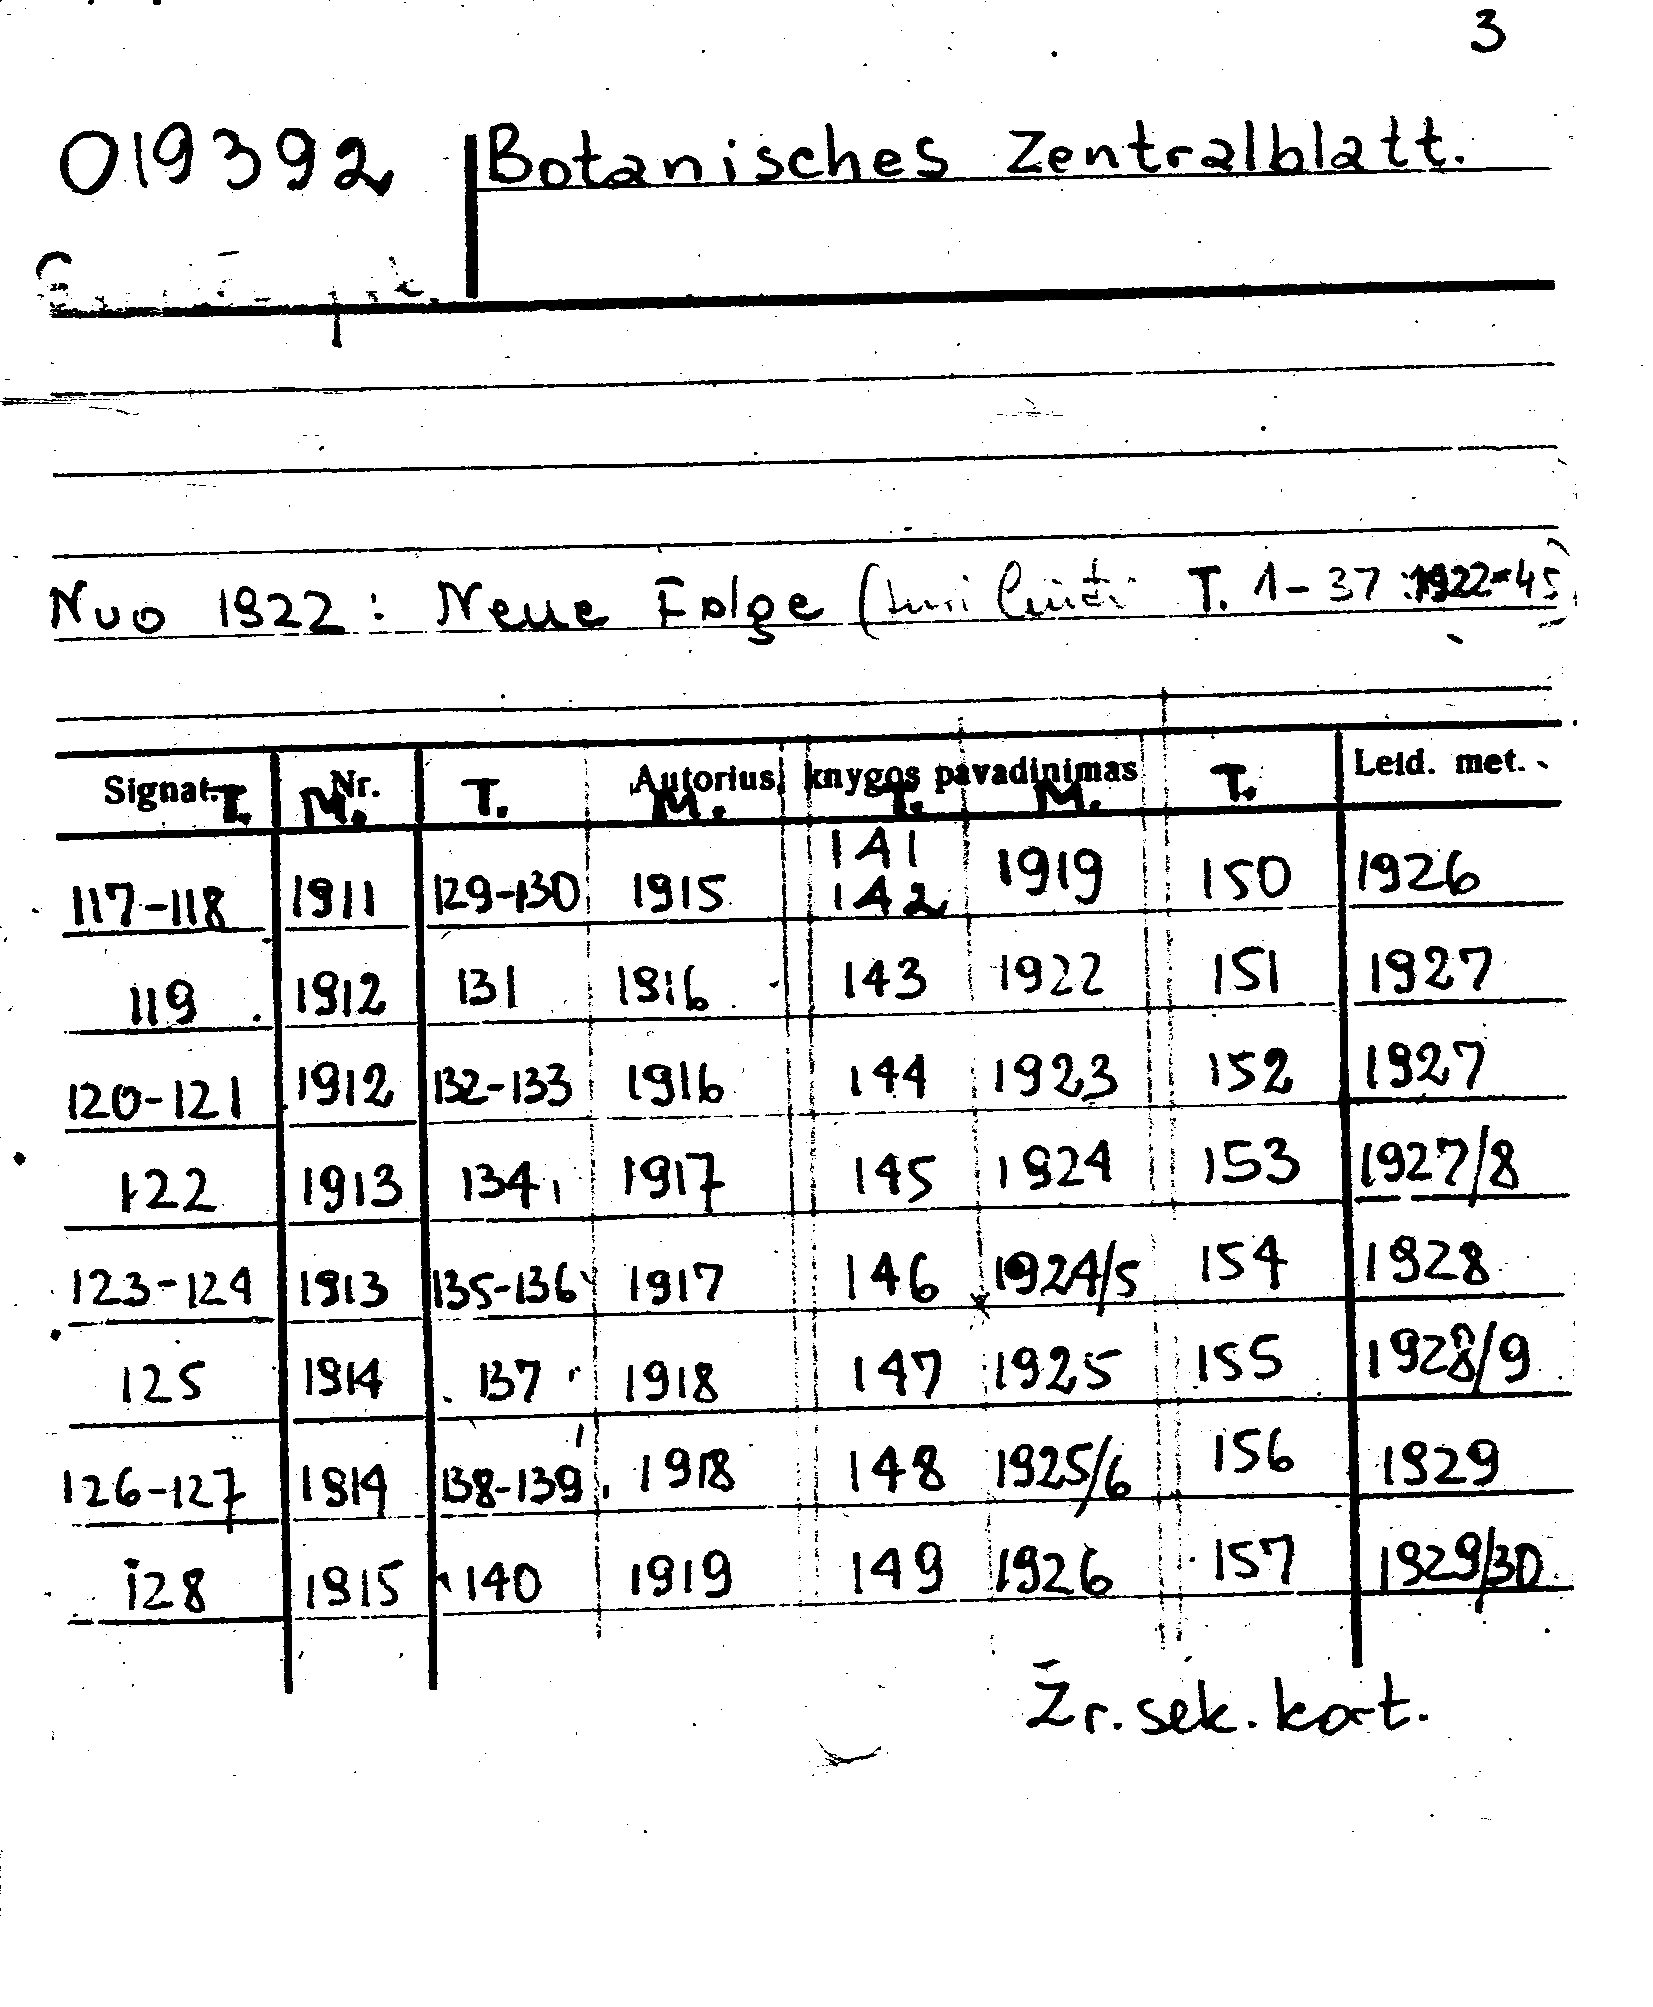 3
019392 Botanisches Zentralblatt.
Nuo 1922: Neue Folge ( T. 1-37 1922-45
Signat. Nr. Autorius, knygos pavadinimas Leid. met.
T. M. T. M. T. M. T.
117-118 1911 129-130 1915 141 142 1919 150 1926
119 1912 131 1916 143 1922 151 1927
120-121 1912 132-133 1916 144 1923 152 1927
122 1913 134 1917 145 1924 153 1927/8
123-124 1913 135-136 1917 146 1924/5 154 1928
125 1914 137 1918 147 1925 155 1928/9
126-127 1914 138-139 1918 148 1925/6 156 1929
128 1915 140 1919 149 1926 157 1929/30
Žr. sek. kort.